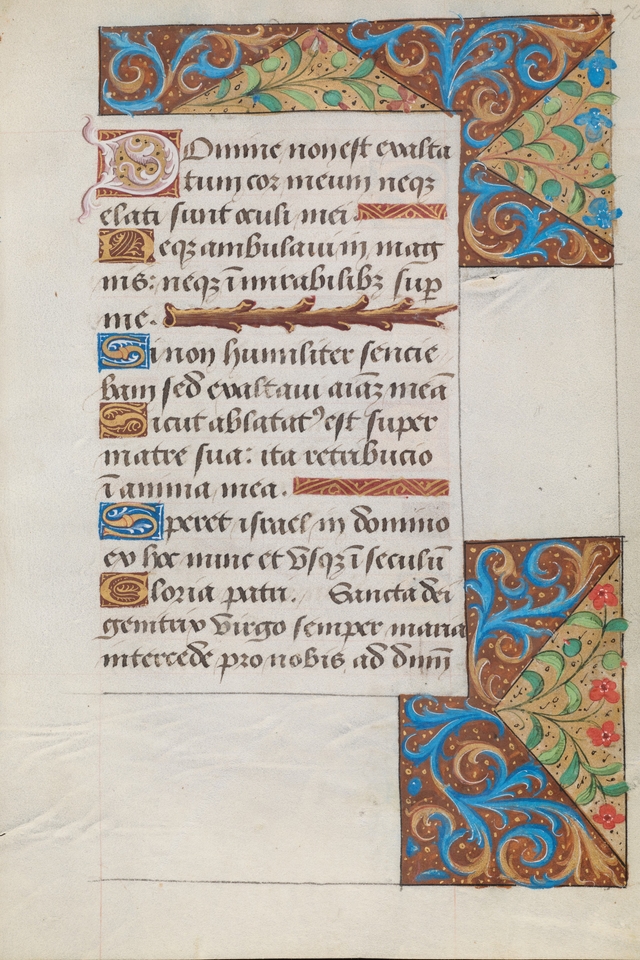 Domine non est exalta
tum cor meum neqꝫ
elati sunt oculi mei.
Neqꝫ ambulaui in mag
nis: neqꝫ ī mirabilibꝫ sup
me.
Si non humiliter sencie
bam sed̄ exaltaui aīaꝫ meā
Sicut ablatatꝰ est super
matre sua: ita retribucio
ī anima mea.
Speret israel in domino
ex hoc nunc et vsqꝫ ī seculū
Gloria patri. Sancta dei
genitrix virgo semper maria
intercede pro nobis ad dn̄m̄